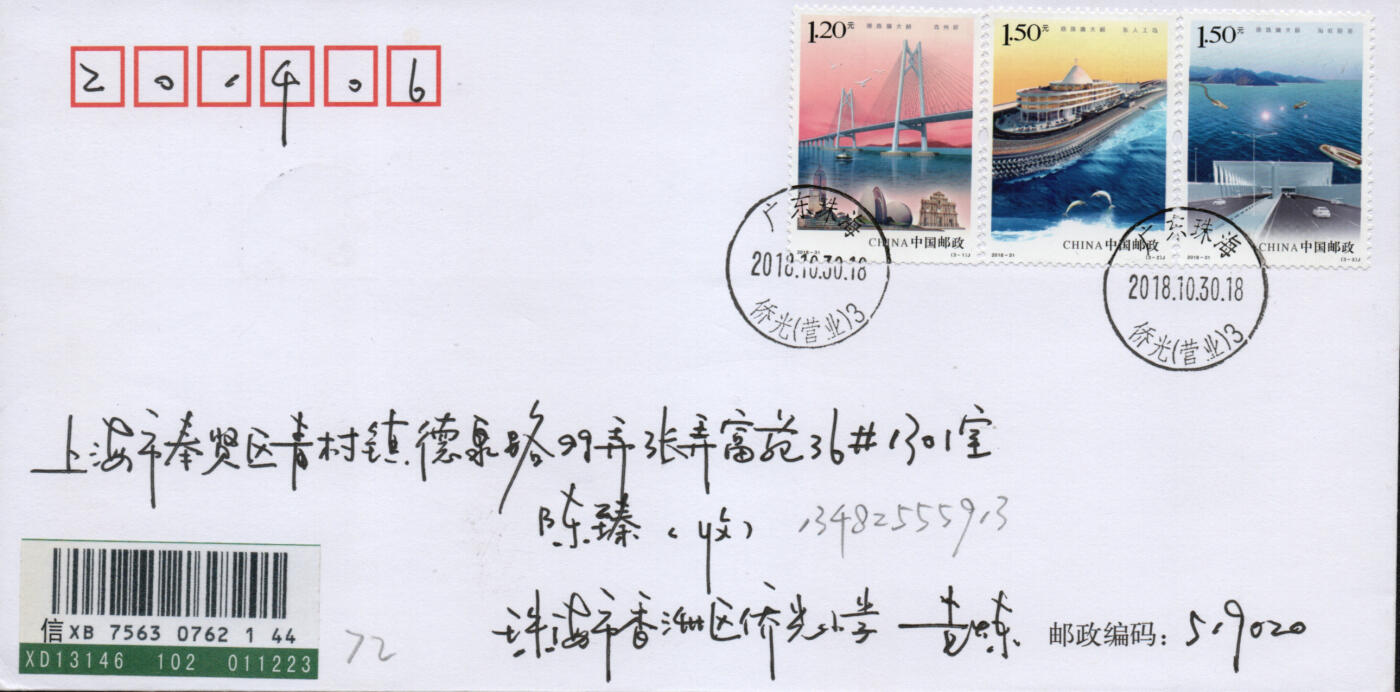 200406
1.20元 港珠澳大桥 青州桥
CHINA 中国邮政
2018-31 (3-1)J
1.50元 港珠澳大桥 东人工岛
CHINA 中国邮政
2018-31 (3-2)J
1.50元 港珠澳大桥 海底隧道
CHINA 中国邮政
2018-31 (3-3)J
广东珠海
2018.10.30.18
侨光(营业)3
广东珠海
2018.10.30.18
侨光(营业)3
上海市奉贤区青村镇德泉路99弄张弄富苑36#1301室
陈臻(收) 13482555913
信 XB 7563 0762 1 44
XD13146 102 011223
72
珠海市香洲区侨光小学 邮政编码: 519020